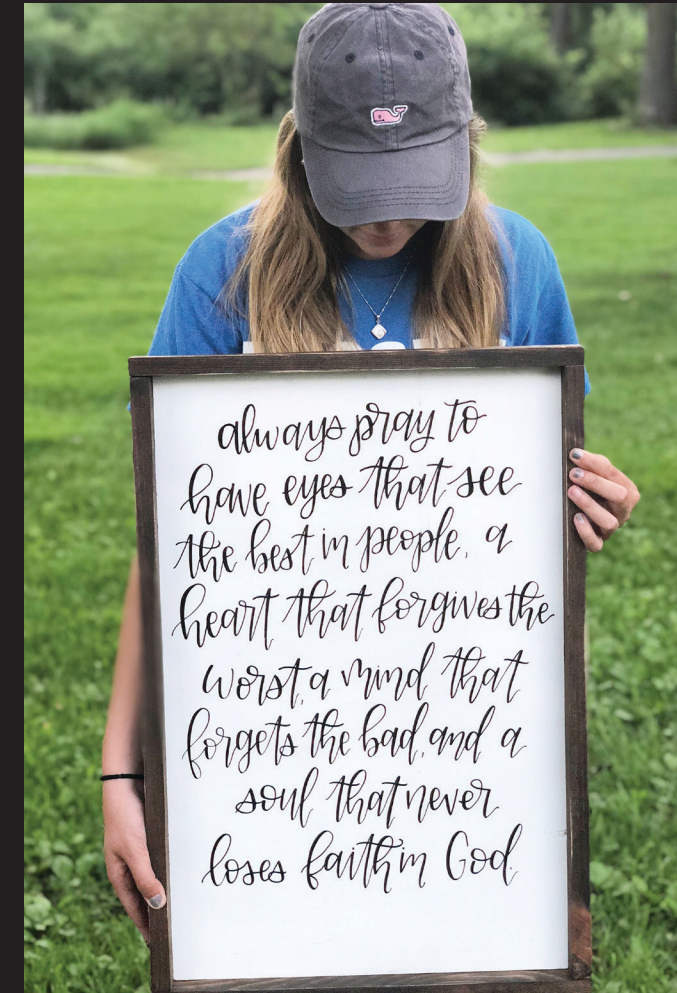 always pray to
have eyes that see
the best in people, a
heart that forgives the
worst, a mind that
forgets the bad, and a
soul that never
loses faith in God.